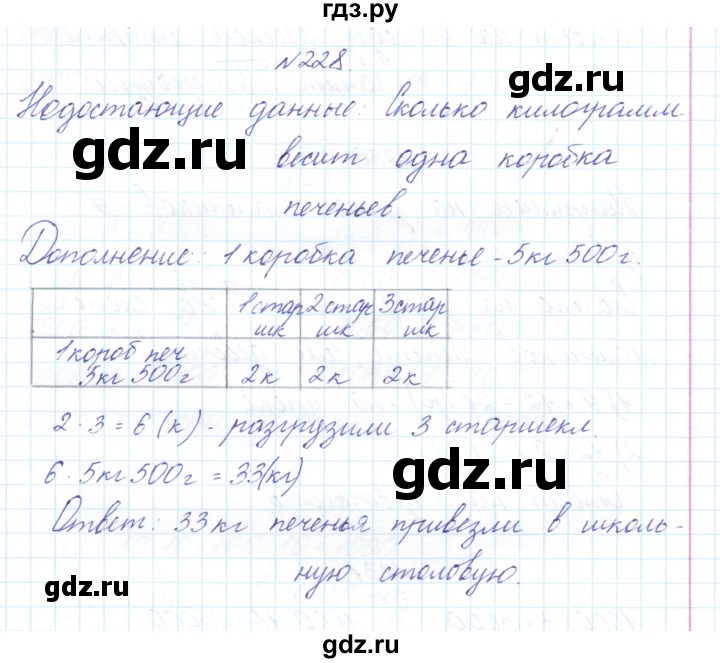 гдз.ру
№228.
Недостающие данные: Сколько килограмм
gdz.ru
весит одна коробка
gdz.ru
печеньев.
Дополнение: 1 коробка печенье - 5кг 500г.
1 стар 2 стар 3 стар
шк шк шк
1 короб печ
5кг 500г 2к 2к 2к
2 · 3 = 6 (к) - разгрузили 3 старшекл.
6 · 5кг 500г = 33(кг)
gdz.ru
Ответ: 33кг печенья привезли в школь-
gdz.ru
ную столовую.
gdz.ru
gdz.ru